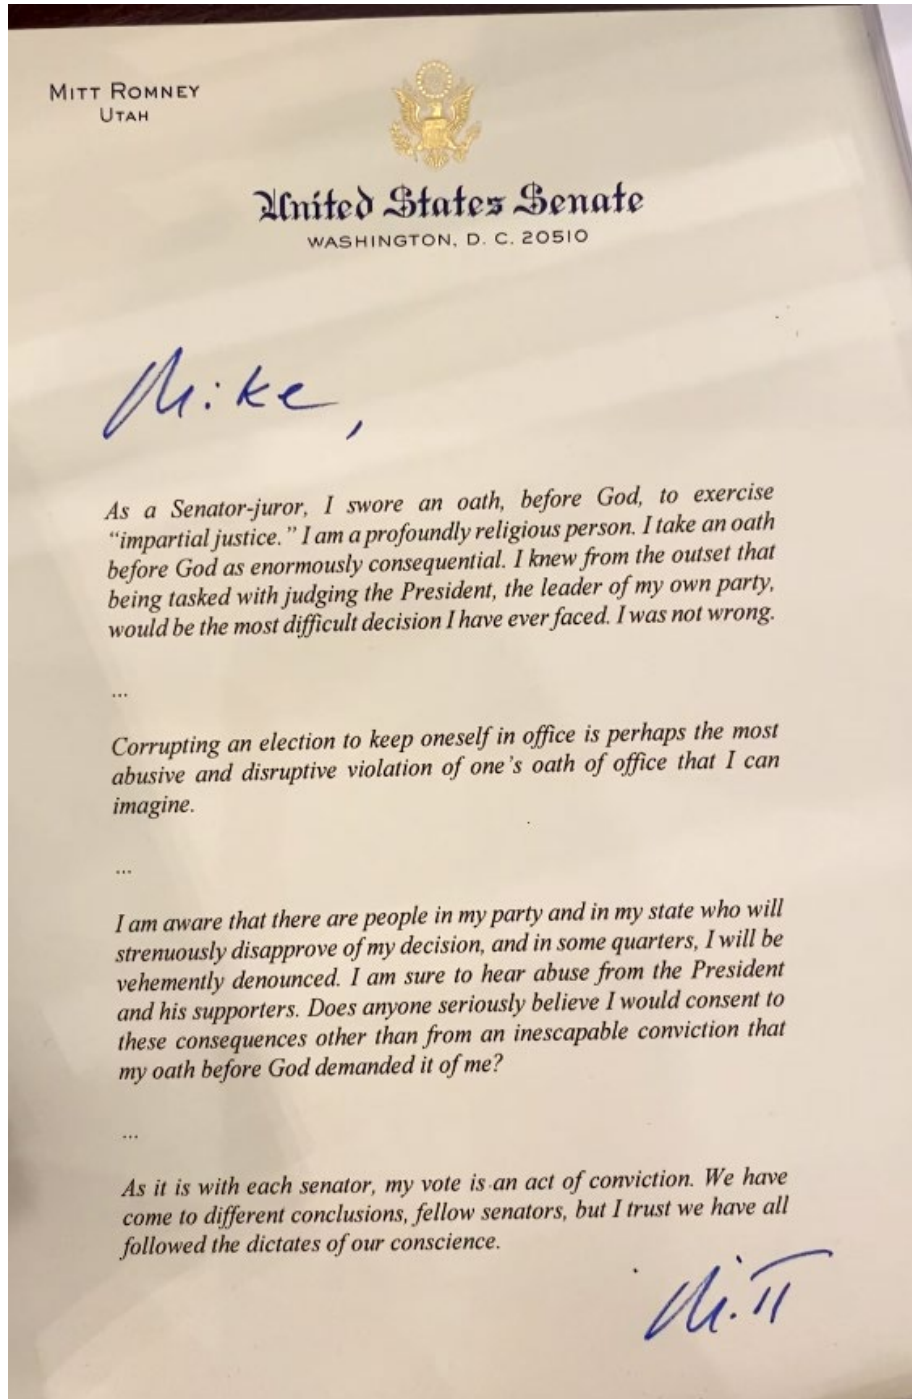 MITT ROMNEY
UTAH
United States Senate
WASHINGTON, D. C. 20510
Mike,
As a Senator-juror, I swore an oath, before God, to exercise
“impartial justice.” I am a profoundly religious person. I take an oath
before God as enormously consequential. I knew from the outset that
being tasked with judging the President, the leader of my own party,
would be the most difficult decision I have ever faced. I was not wrong.
...
Corrupting an election to keep oneself in office is perhaps the most
abusive and disruptive violation of one’s oath of office that I can
imagine.
...
I am aware that there are people in my party and in my state who will
strenuously disapprove of my decision, and in some quarters, I will be
vehemently denounced. I am sure to hear abuse from the President
and his supporters. Does anyone seriously believe I would consent to
these consequences other than from an inescapable conviction that
my oath before God demanded it of me?
...
As it is with each senator, my vote is an act of conviction. We have
come to different conclusions, fellow senators, but I trust we have all
followed the dictates of our conscience.
Mitt